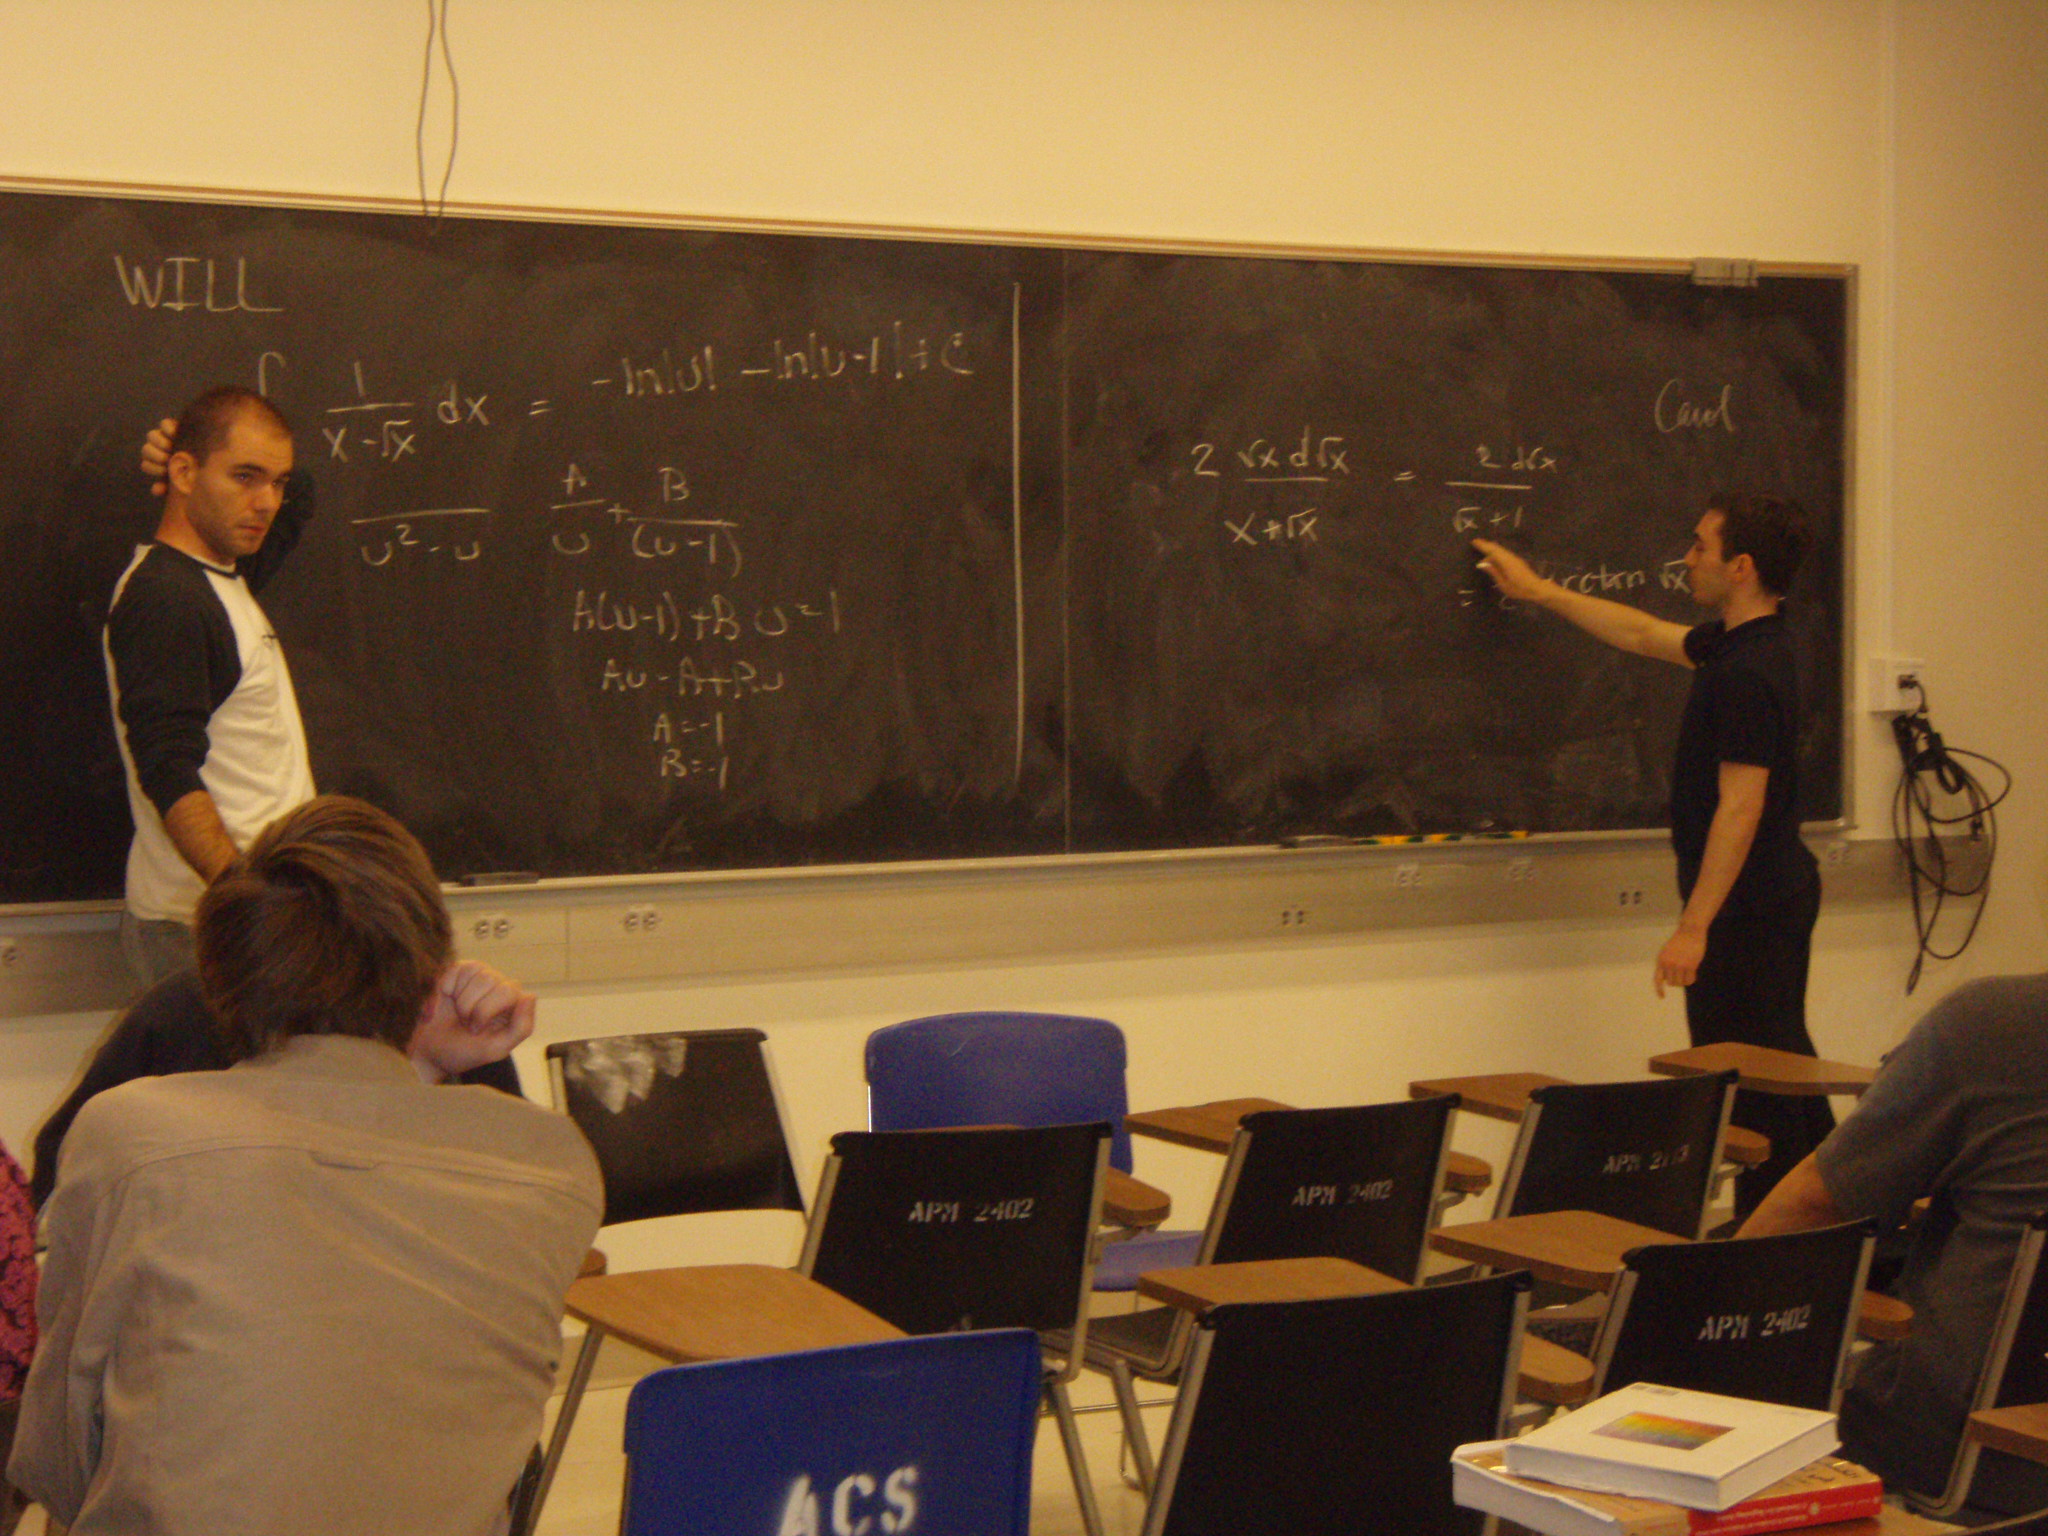 WILL
∫ 1/(x-√x) dx = -ln|u| -ln|u-1| + C
/(u² - u) A/u + B/(u-1)
A(u-1)+B u=1
Au - A+Bu
A=-1
B=-1
2 √x d√x/(x+√x) = 2 d√x/(√x+1)
= arctan √x
APM 2402
APM 2402
APM
APM 2402
ACS